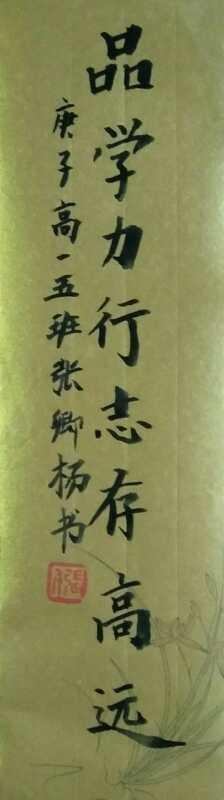 品学力行志存高远
庚子高一五班张卿杨书